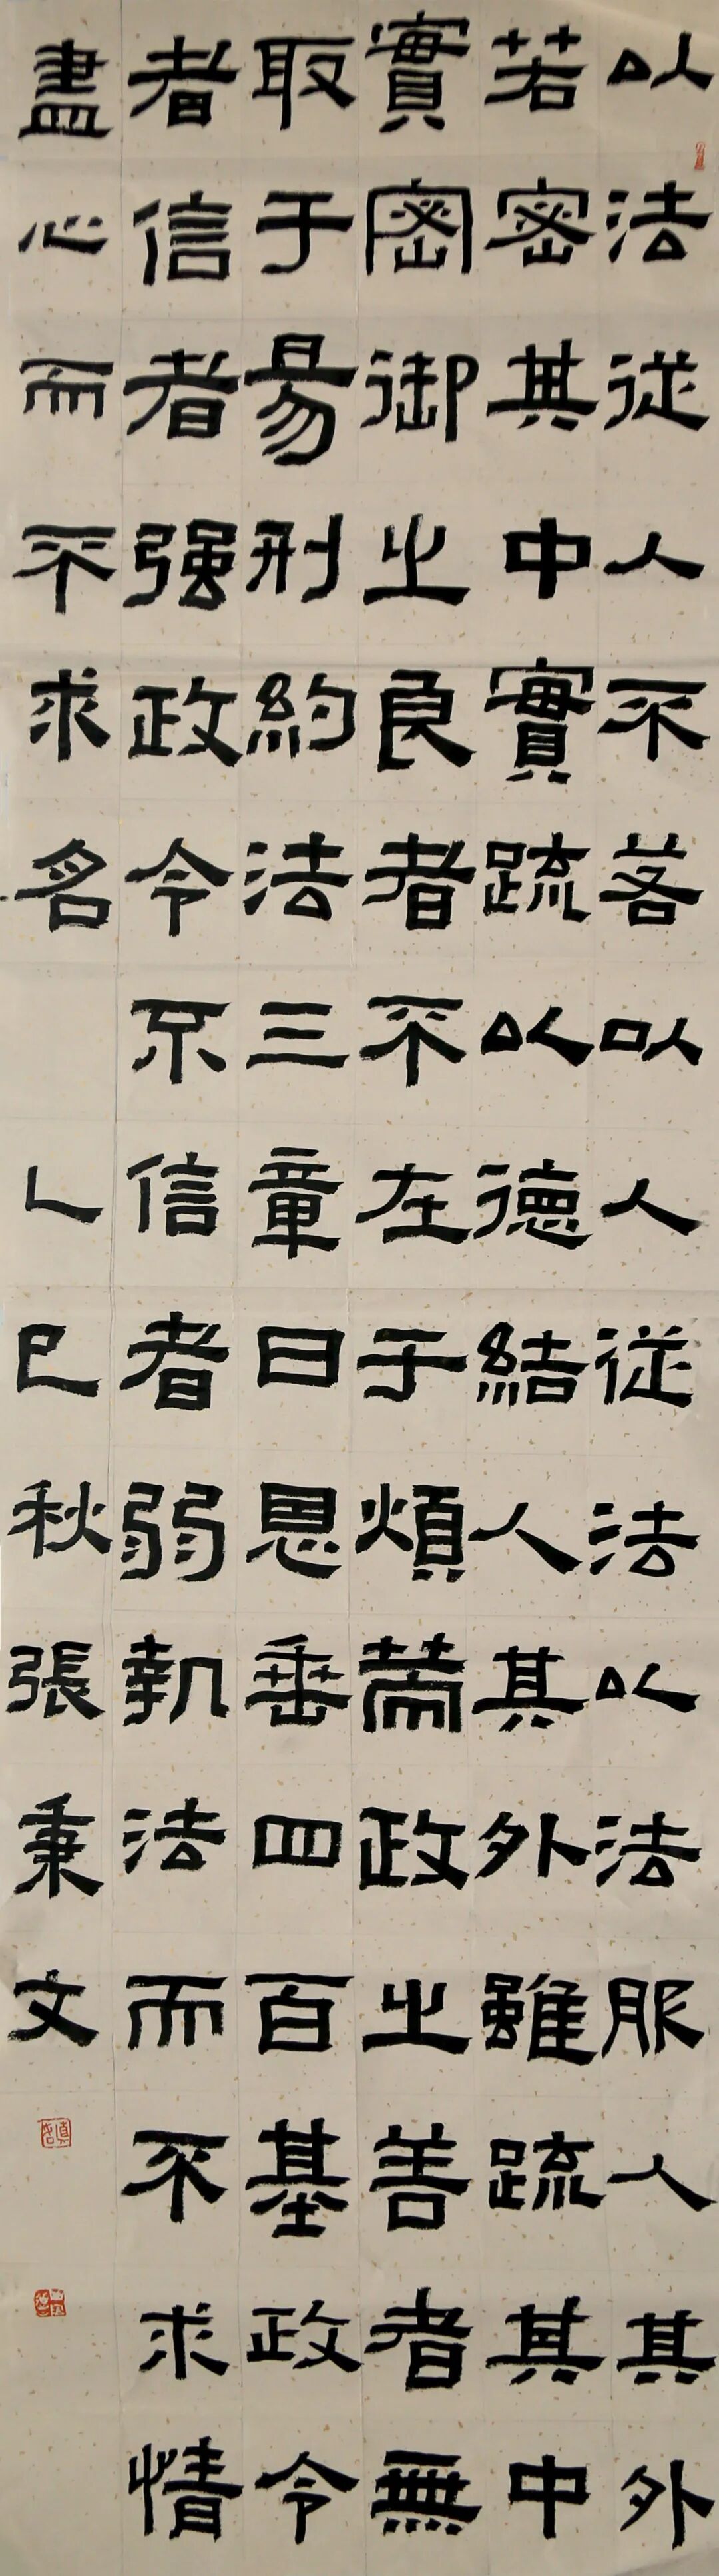 以法從人不若以人從法以法服人其外
若密其中實疏以德結人其外雖疏其中
實密御之良者不在于煩策政之善者無
取于易刑約法三章曰恩垂四百基政令
者信者强政令不信者弱執法而不求情
盡心而不求名 乙巳秋張秉文